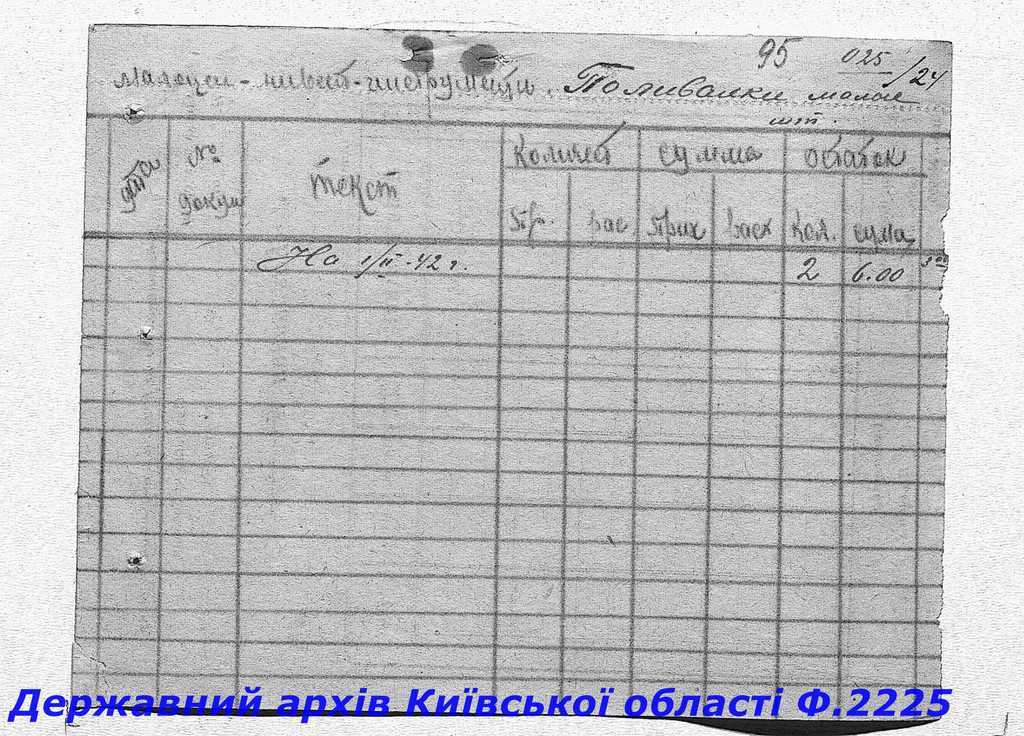 95 025/24
малоцен-инвент-инструменты. Поливалки малые
шт.
дата № докум текст Количест сумма остаток
пр. рас прих расх кол. сума
На 1/III-42 г. 2 6.00 3 00
Державний архів Київської області Ф.2225